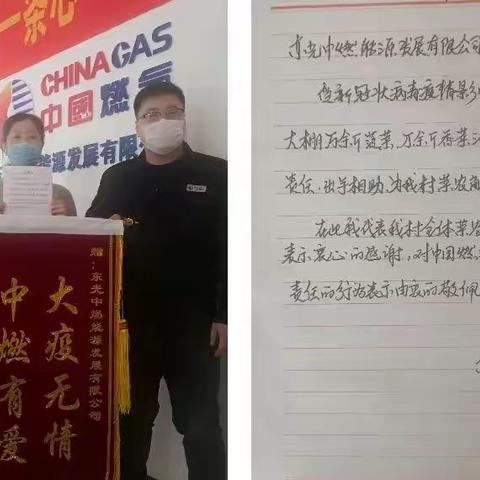 一条心
CHINAGAS
中國燃氣
能源发展有限公
赠:东光中燃能源发展有限公司
大疫无情
中燃有爱
东光中燃能源发展有限公司
受新冠状病毒疫情影
大棚万余斤菠菜,万余斤香菜,
责任,出手相助,为我村菜农
在此我代表我村全体菜
表示衷心的感谢,对中国燃
责任的行为表示由衷的敬佩